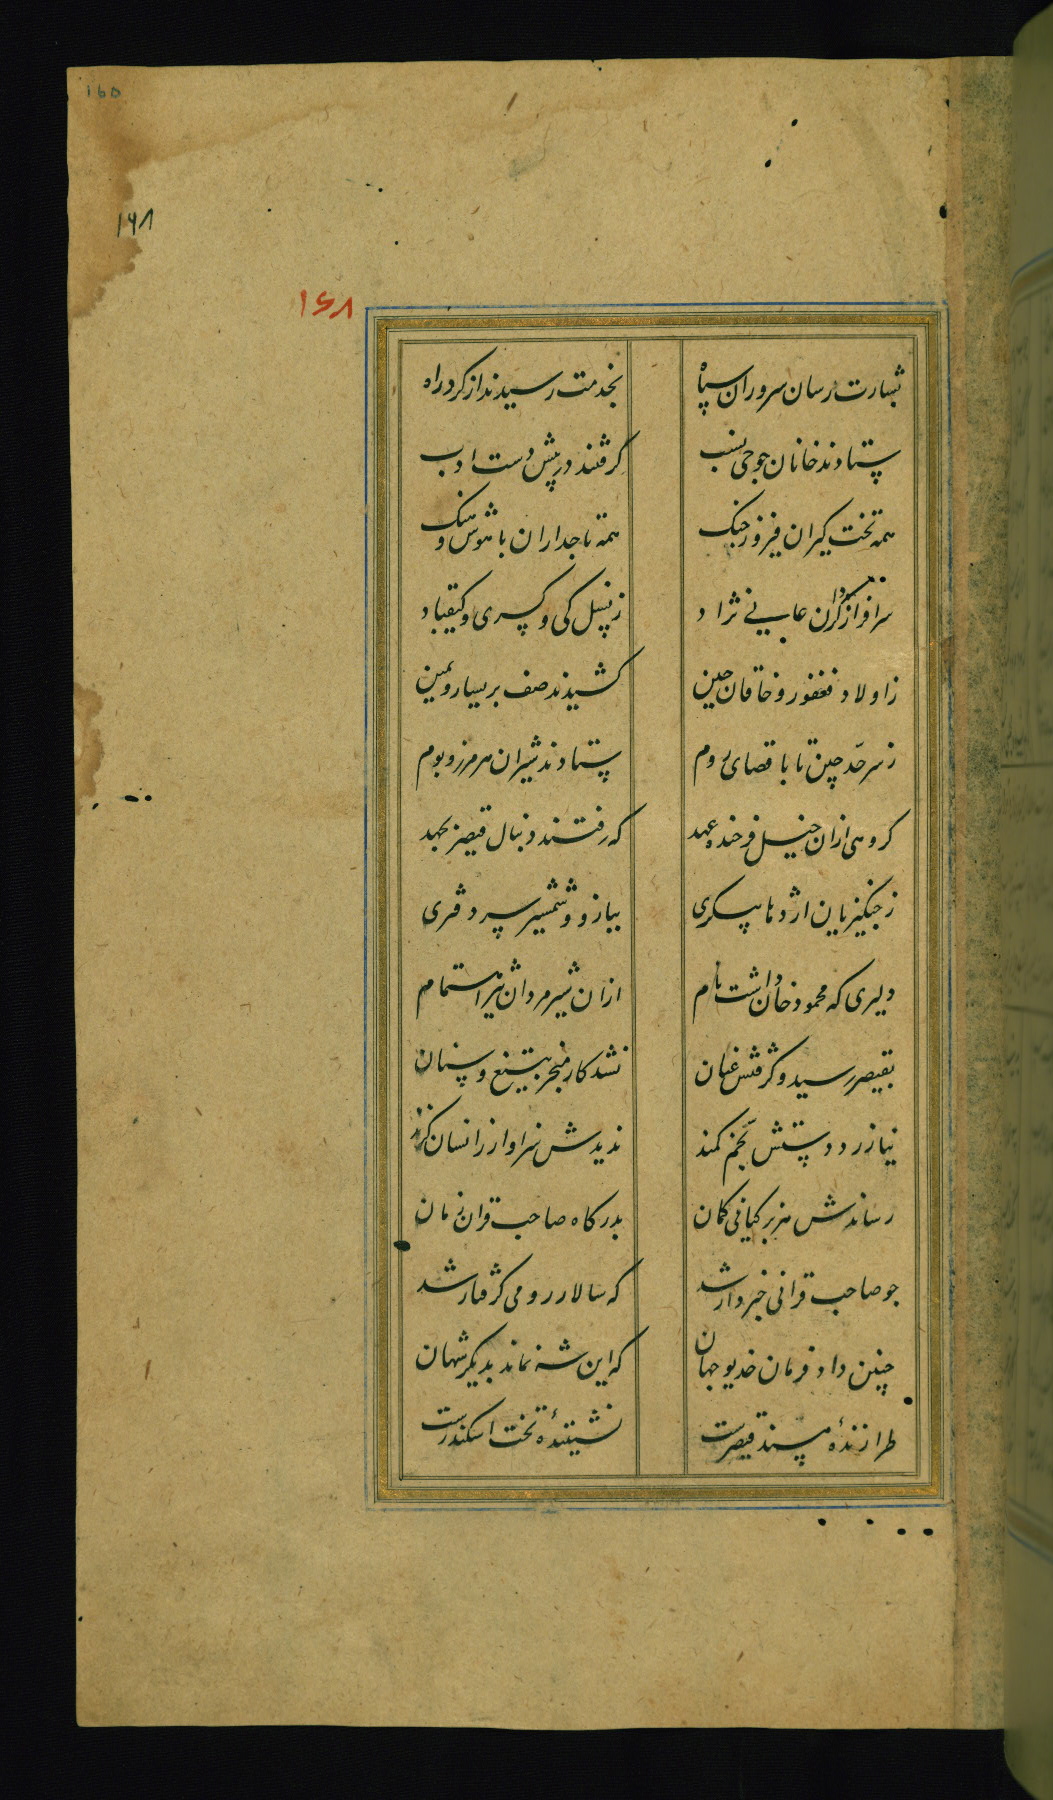 165
۱۶۸
۱۶۸
بشارت رسان سروران سپاه بخدمت رسیدند از کرد راه
ستادند خانان جوجی نسب کرفتند در پیش دست ادب
همه تخت کیران فیروز جنک همه تاجداران با هوش و هنک
سرافراز نژاد ز نسل کی و کسری و کیقباد
ز اولاد فغفور و خاقان چین کشیدند صف بر یسار و یمین
ز سرحد چین تا باقصای روم ستادند شیران هر مرز و بوم
کروهی ازان خیل فرخنده عهد که رفتند دنبال قیصر بجهد
ز جنکیزیان اژدها پیکری ببازو و شمشیر سرد فتری
دلیری که محمود خان داشت نام ازان شیر مردان اهتمام
بقیصر رسید و کرفتش عنان نشد کار منجر بتیغ و سنان
نیازرد دستش بخم کمند ندیدش سزاوار زانسان کزند
رساندش هزبر کیانی کمان بدرکاه صاحب قران زمان
چو صاحب قرانی خبردار شد که سالار رومی کرفتار شد
چنین داد فرمان خدیو جهان که این شه نماند بدیکر شهان
طرازندهٔ مسند قیصرست نشینندهٔ تخت اسکندرست